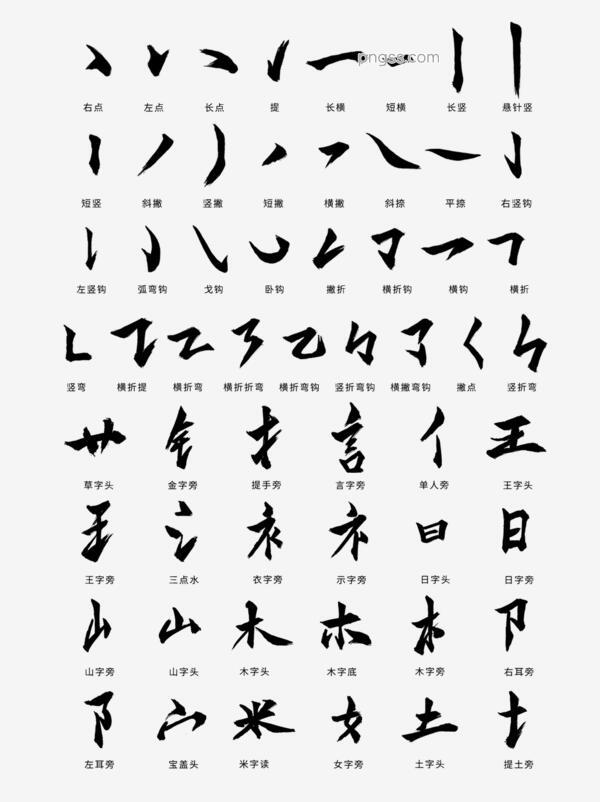 pngss.com
右点 左点 长点 提 长横 短横 长竖 悬针竖
短竖 斜撇 竖撇 短撇 横撇 斜捺 平捺 右竖钩
左竖钩 弧弯钩 戈钩 卧钩 撇折 横折钩 横钩 横折
竖弯 横折提 横折弯 横折折弯 横折弯钩 竖折弯钩 横撇弯钩 撇点 竖折弯
草字头 金字旁 提手旁 言字旁 单人旁 王字头
王字旁 三点水 衣字旁 示字旁 日字头 日字旁
山字旁 山字头 木字头 木字底 木字旁 右耳旁
左耳旁 宝盖头 米字读 女字旁 土字头 提土旁